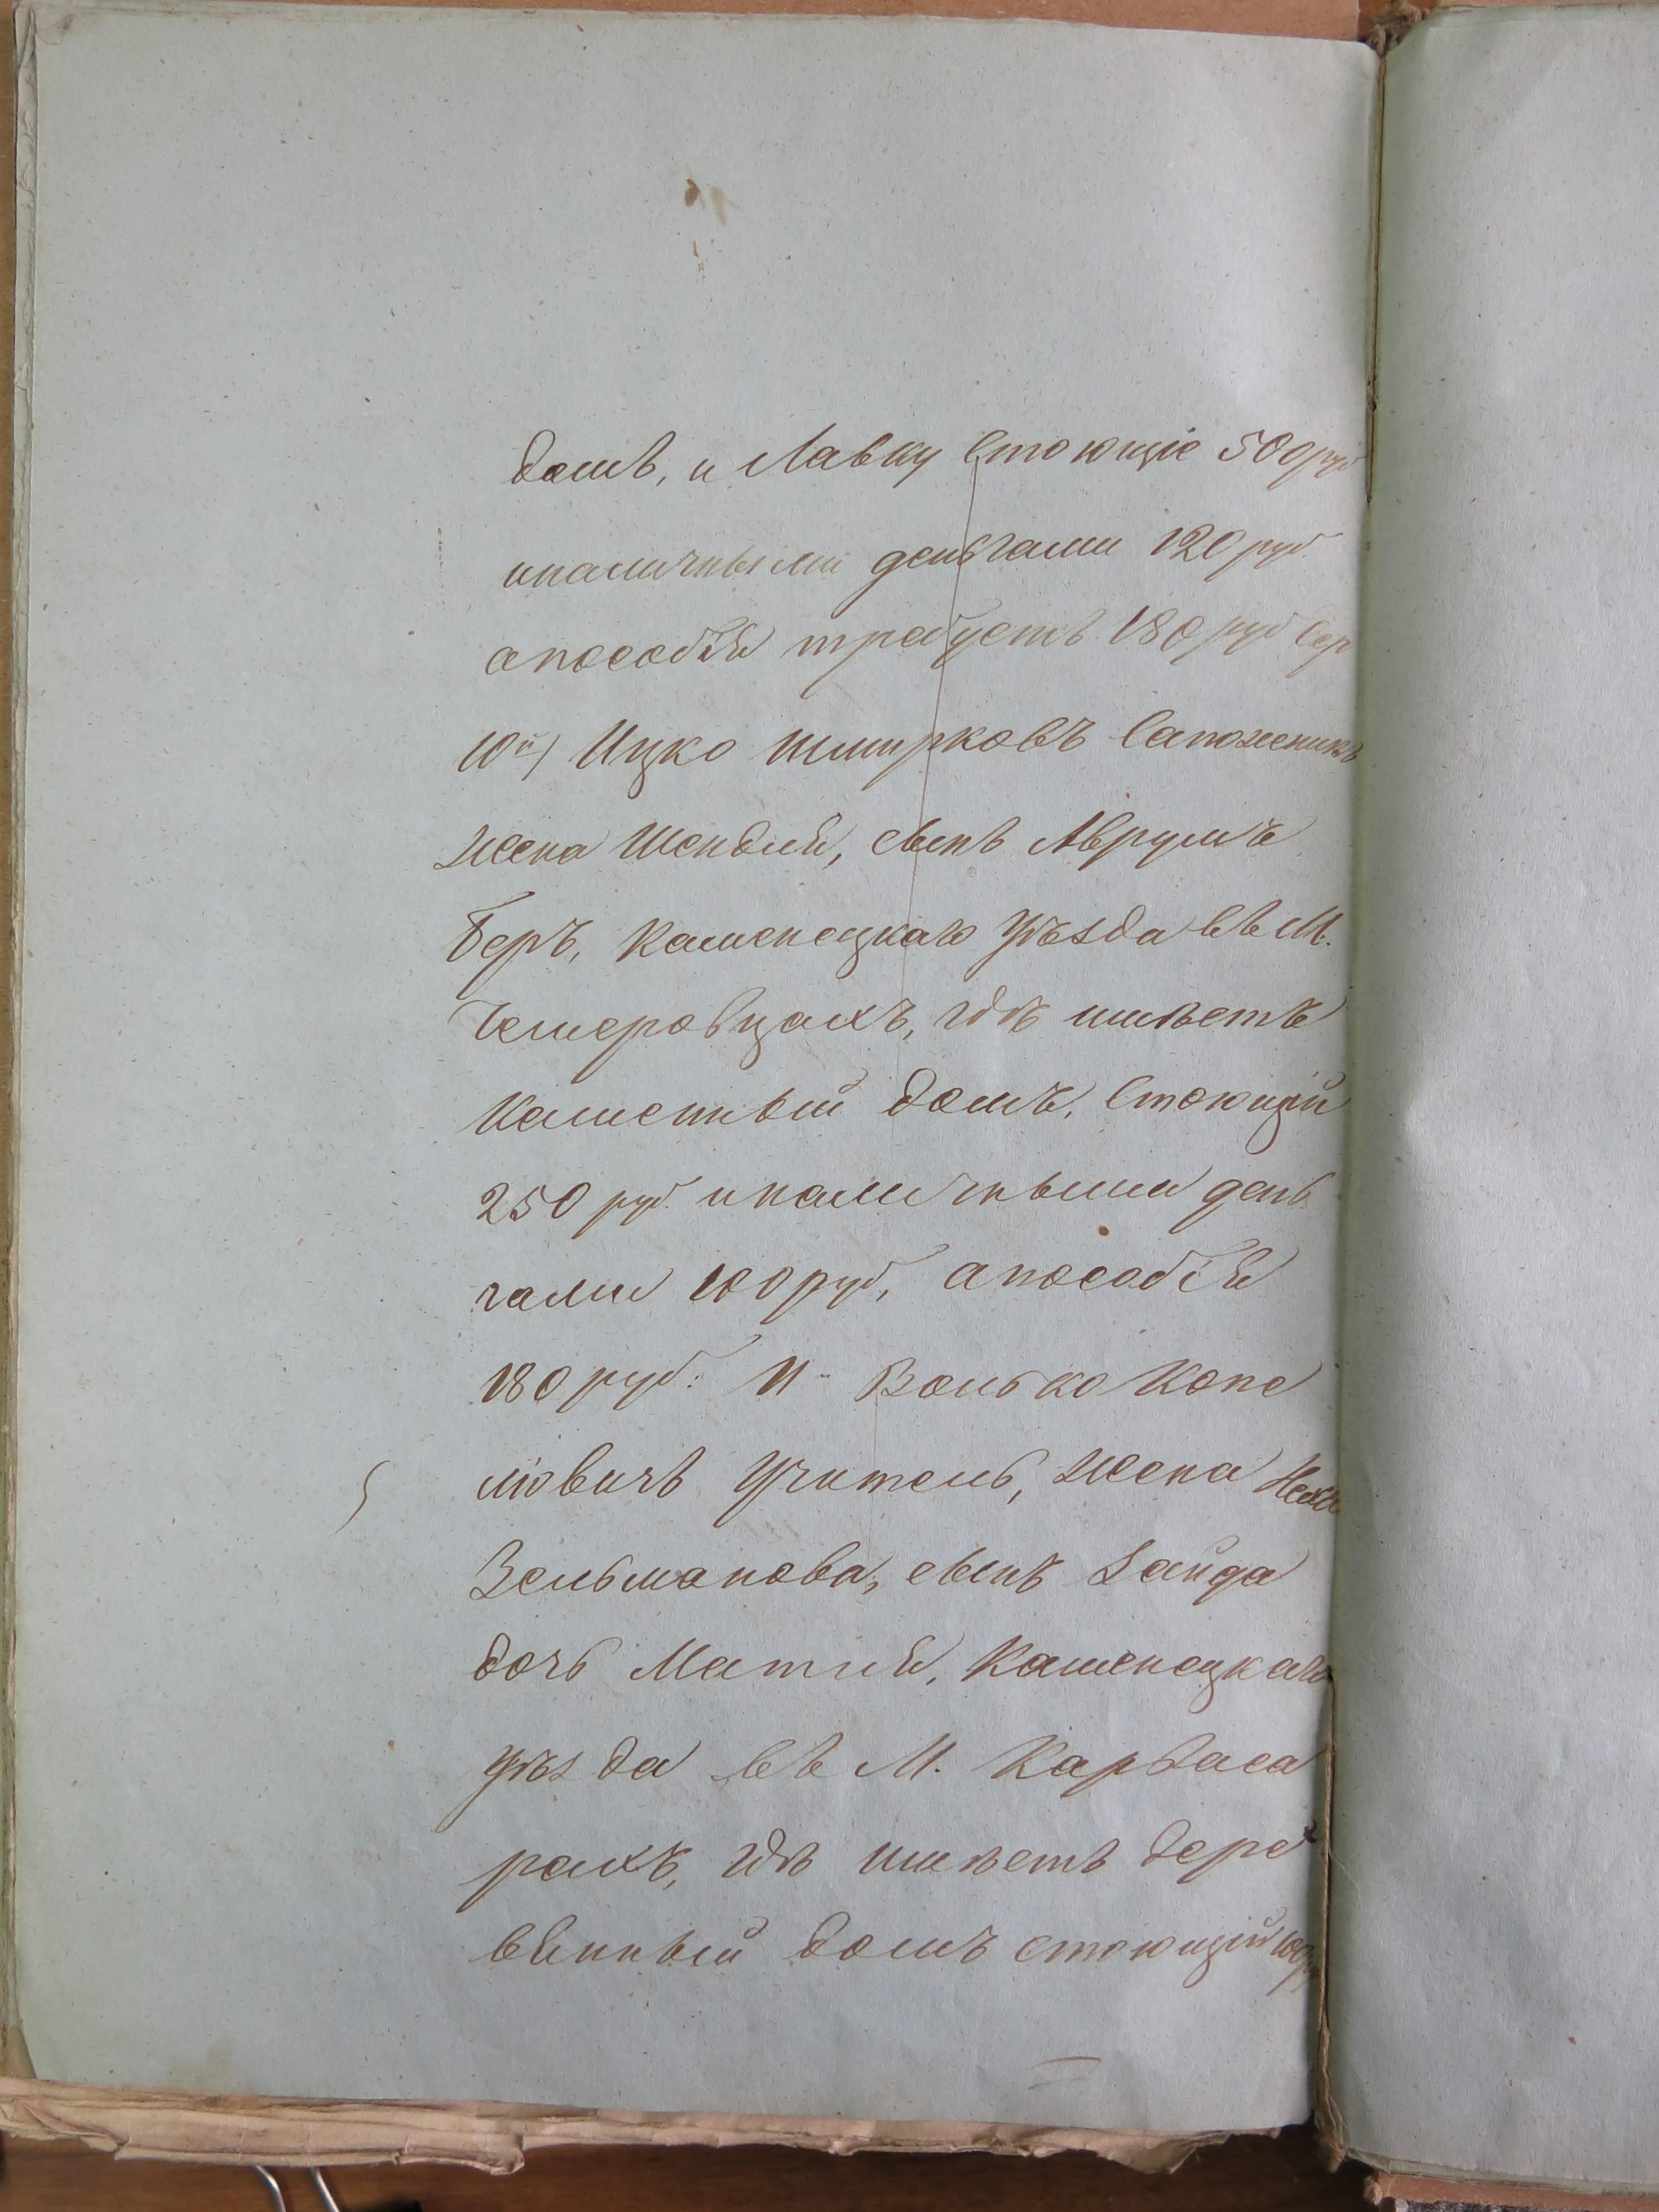 домъ, и Лавку Стоющіе 500 руб
иналичными деньгами 120 руб.
апособія требуетъ 180 руб Сер
10й) Ицко Шмирковъ Сапожникъ
жена Шендля, сынъ Аврумъ
Беръ, Каменецкаго уѣзда въ М.
Чемеровцахъ, гдѣ имѣетъ
Каменный домъ, Стоющій
250 руб. иналичными день
гами 100 руб, апособія
180 руб: 11- Волько Копе
ліовичъ Учитель, жена Неха
Зельманова, сынъ Зайда
дочь Матля, Каменецкаго
уѣзда въ М. Карваса
рахъ, гдѣ имѣетъ дере
вянный домъ стоющій 100 ру